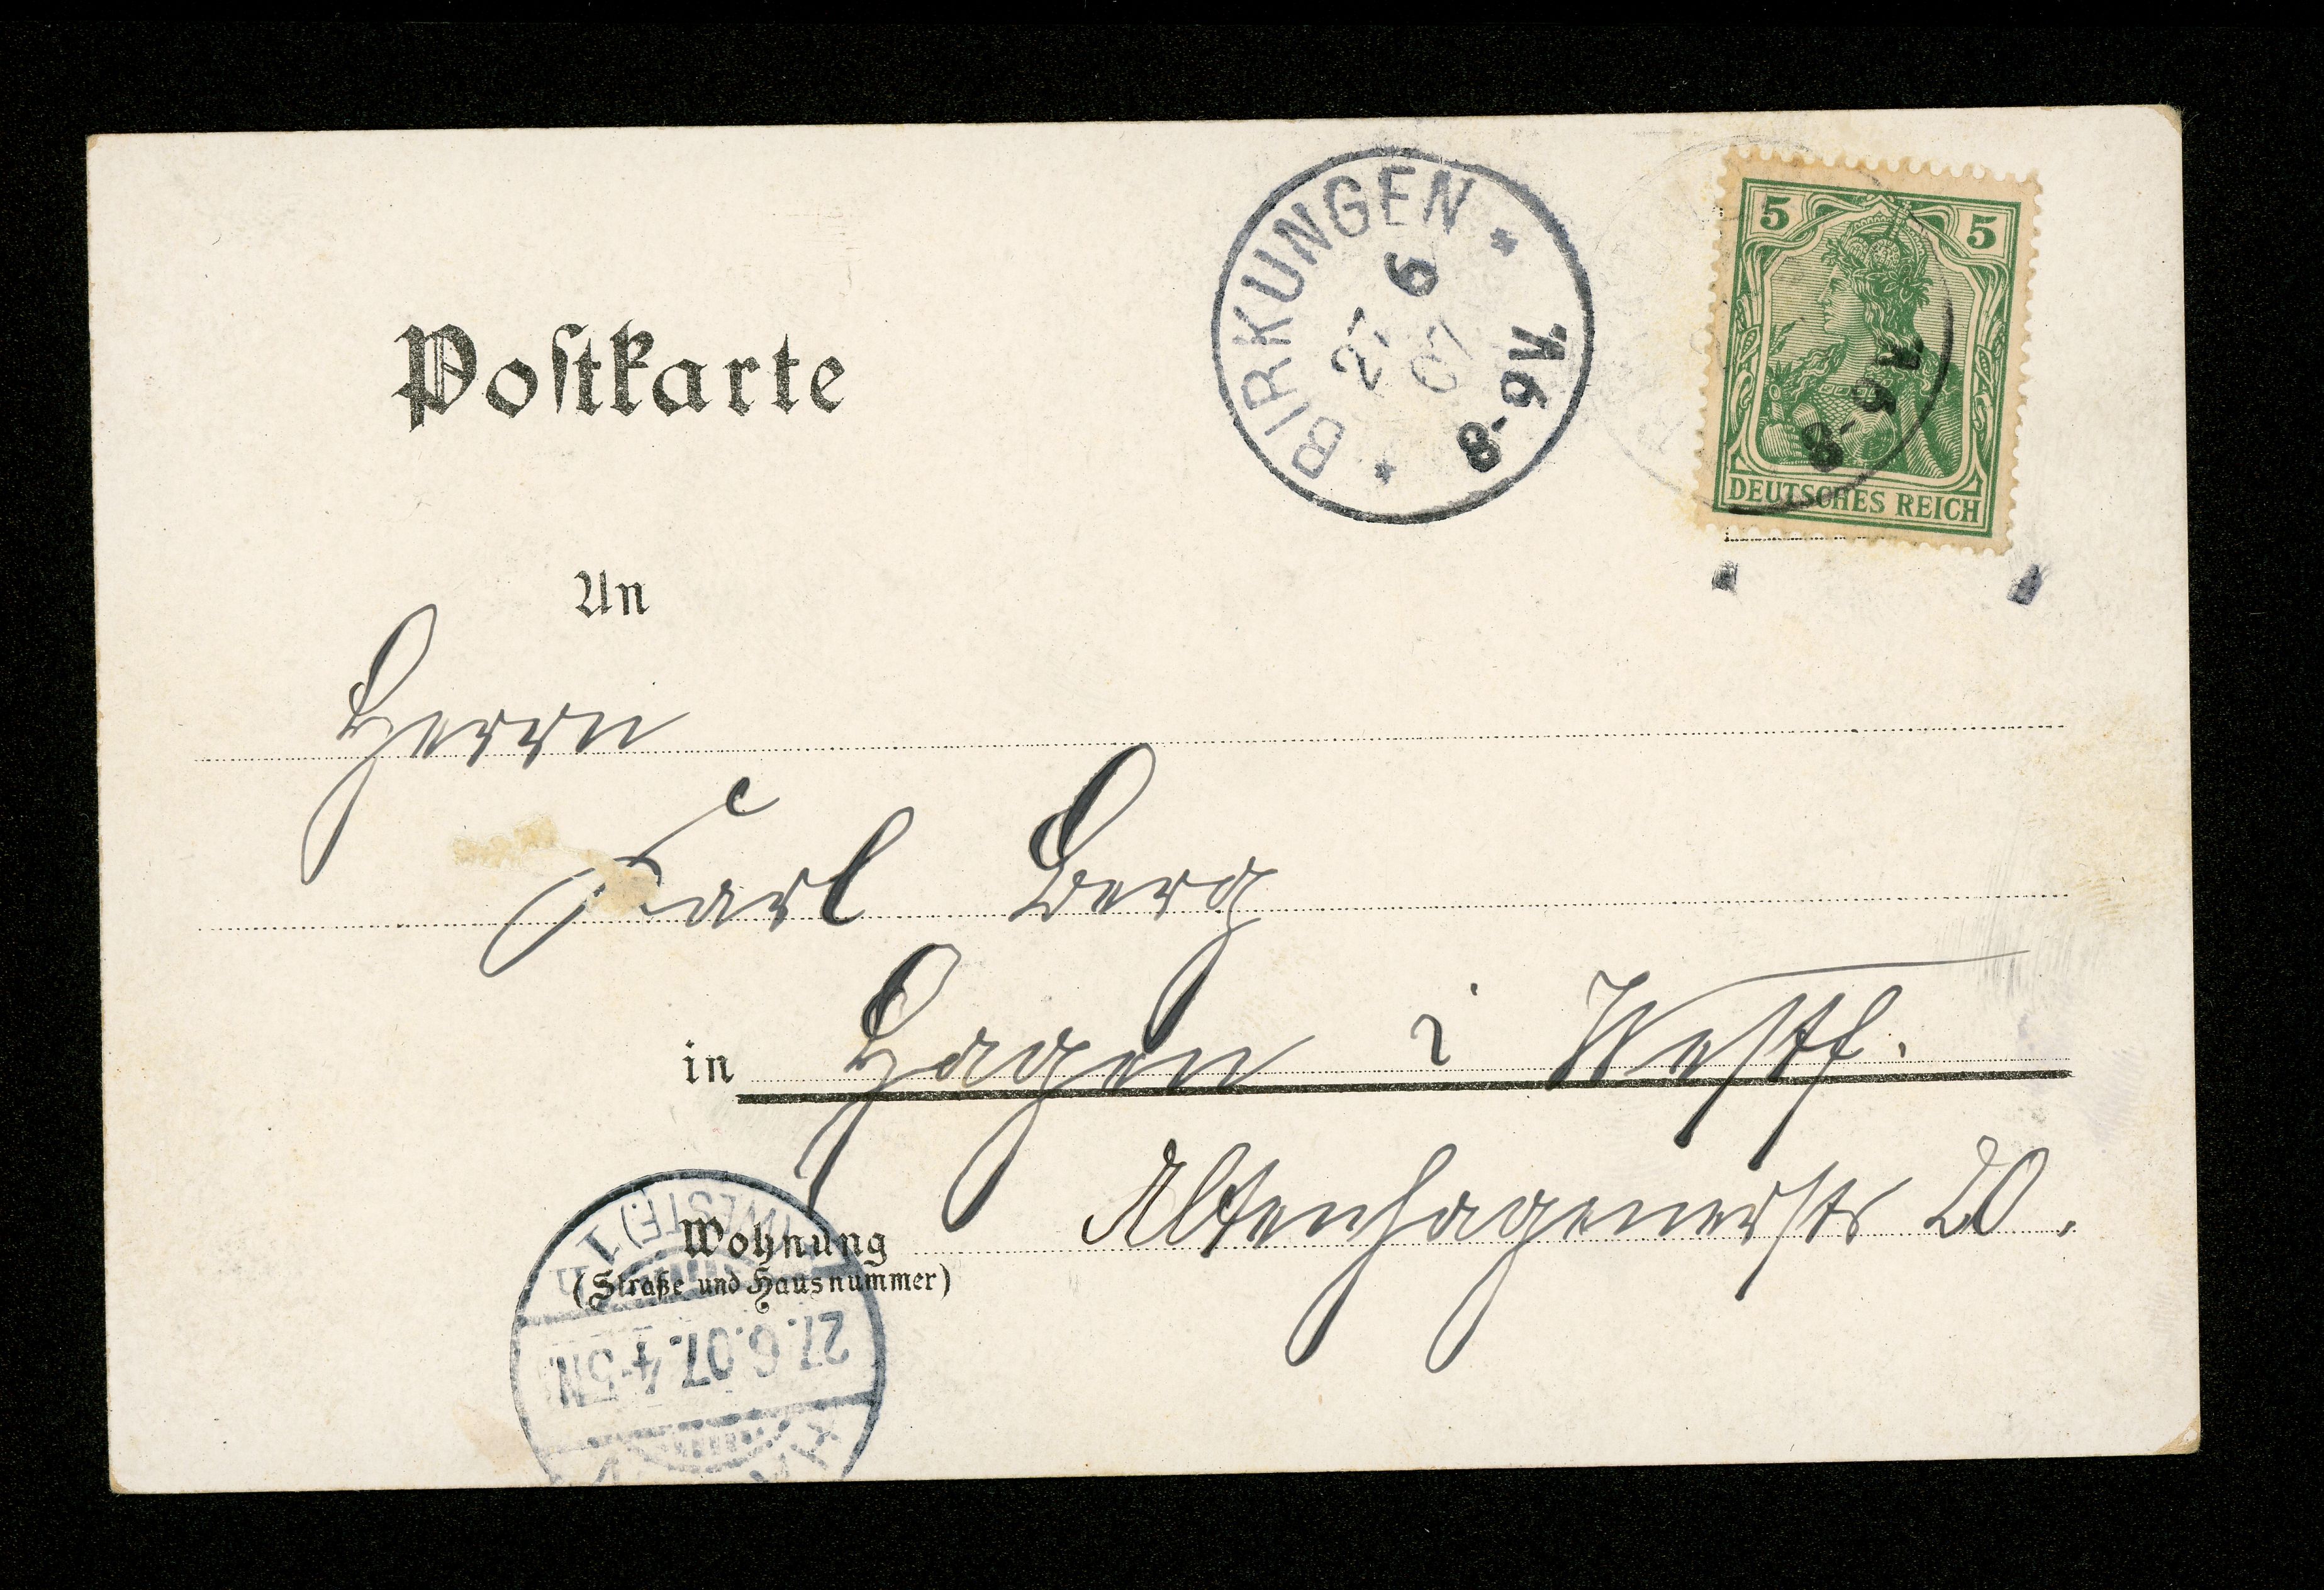 Postkarte
BIRKUNGEN
27 6 07
* 6-8 V *
5 5
DEUTSCHES REICH
An
Herrn
Karl Berg
in Hagen i Westf.
Altenhagenerstr 20.
Wohnung
(Straße und Hausnummer)
(WESTF.) 1
27.6.07. 4-5N.